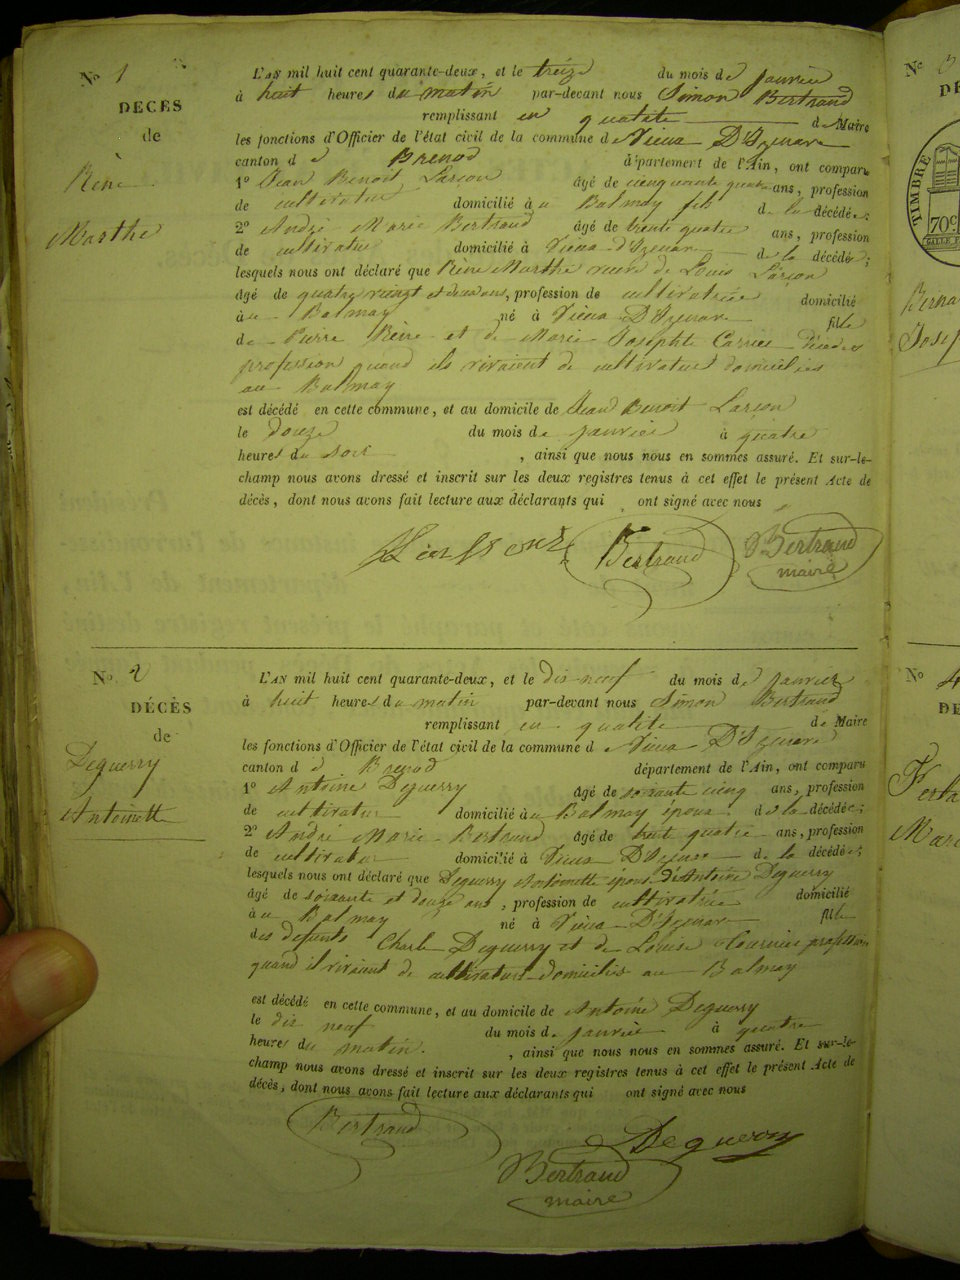 No 1
DECÈS
de
Rène
Marthe
L'AN mil huit cent quarante-deux, et le treize du mois de janvier
à huit heures du matin par-devant nous Simon Bertrand
remplissant en qualité de Maire
les fonctions d'Officier de l'état civil de la commune de Vieux D'Izenave
canton d e Brenod département de l'Ain, ont comparu
1º Jean Benoit Larçon âgé de cinquante quatre ans, profession
de cultivateur domicilié à u Balmay fils de la décédée;
2º André Marie Bertrand âgé de trente quatre ans, profession
de cultivateur domicilié à Vieux d'Izenave de la décédée;
lesquels nous ont déclaré que Rène Marthe veuve de Louis Larçon
âgé de quatre vingt et deux ans, profession de cultivatrice domicilié
à u Balmay né à Vieux D'Izenave fille
de Pierre Rène et de Marie Josephte Carrier
profession quand ils vivaient de cultivateur domiciliés
au Balmay
est décédé en cette commune, et au domicile de Jean Benoit Larçon
le douze du mois de janvier à quatre
heures du soir , ainsi que nous nous en sommes assuré. Et sur-le-
champ nous avons dressé et inscrit sur les deux registres tenus à cet effet le présent Acte de
décès, dont nous avons fait lecture aux déclarants qui ont signé avec nous
Bertrand Bertrand
maire
No 2
DÉCÈS
de
Deguerry
Antoinette
L'AN mil huit cent quarante-deux, et le dix-neuf du mois de janvier
à huit heures du matin par-devant nous Simon Bertrand
remplissant en qualité de Maire
les fonctions d'Officier de l'état civil de la commune d e Vieux D'Izenave
canton d e Brenod département de l'Ain, ont comparu
1º Antoine Deguerry âgé de soixante cinq ans, profession
de cultivateur domicilié à u Balmay époux de la décédée;
2º André Marie Bertrand âgé de trent quatre ans, profession
de cultivateur domicilié à Vieux D'Izenave de la décédée;
lesquels nous ont déclaré que Deguerry Antoinette épouse d'Antoine Deguerry
âgé de soixante et douze ans, profession de cultivatrice domicilié
à u Balmay né à Vieux D'Izenave fille
des defunts Charle Deguerry et de Louise profession
quand il vivaient de cultivateur domiciliés au Balmay
est décédé en cette commune, et au domicile de Antoine Deguerry
le dix neuf du mois de janvier à quatre
heures du matin. , ainsi que nous nous en sommes assuré. Et sur-le-
champ nous avons dressé et inscrit sur les deux registres tenus à cet effet le présent Acte de
décès, dont nous avons fait lecture aux déclarants qui ont signé avec nous
Bertrand Deguerry
Bertrand
maire
TIMBRE
70c
No 4